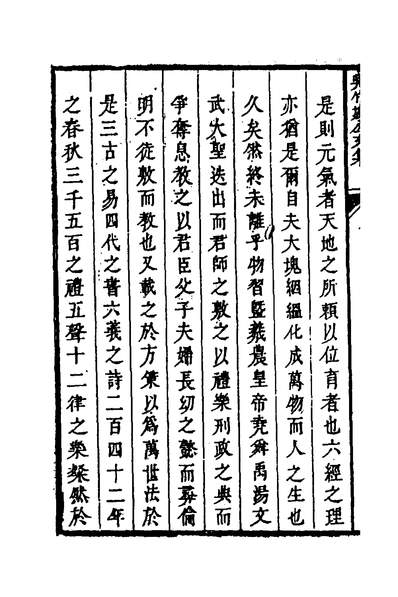 是則元氣者天地之所頼以位育者也六經之理
亦猶是爾自夫大塊絪緼化成萬物而人之生也
久矣然終未離乎物習曁羲農皇帝堯舜禹湯文
武大聖迭出而君師之敷之以禮樂刑政之典而
爭奪息教之以君臣父子夫婦長幼之懿而彛倫
明不徒敷而教也又載之於方策以為萬世法於
是三古之易四代之書六義之詩二百四十二年
之春秋三千五百之禮五聲十二律之樂粲然於